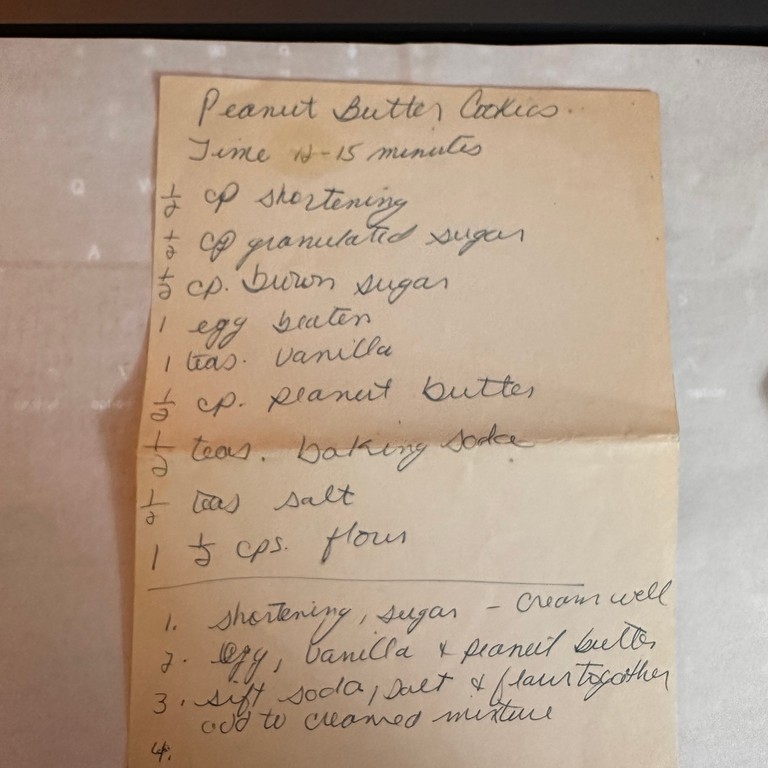 Peanut Butter Cookies
Time 12-15 minutes
1/2 cp shortening
1/2 cp granulated sugar
1/2 cp. brown sugar
1 egg beaten
1 teas. vanilla
1/2 cp. peanut butter
1/2 teas. baking soda
1/2 teas salt
1 1/2 cps. flour
1. shortening, sugar - cream well
2. egg, vanilla & peanut butter
3. sift soda, salt & flour together
add to creamed mixture
4.